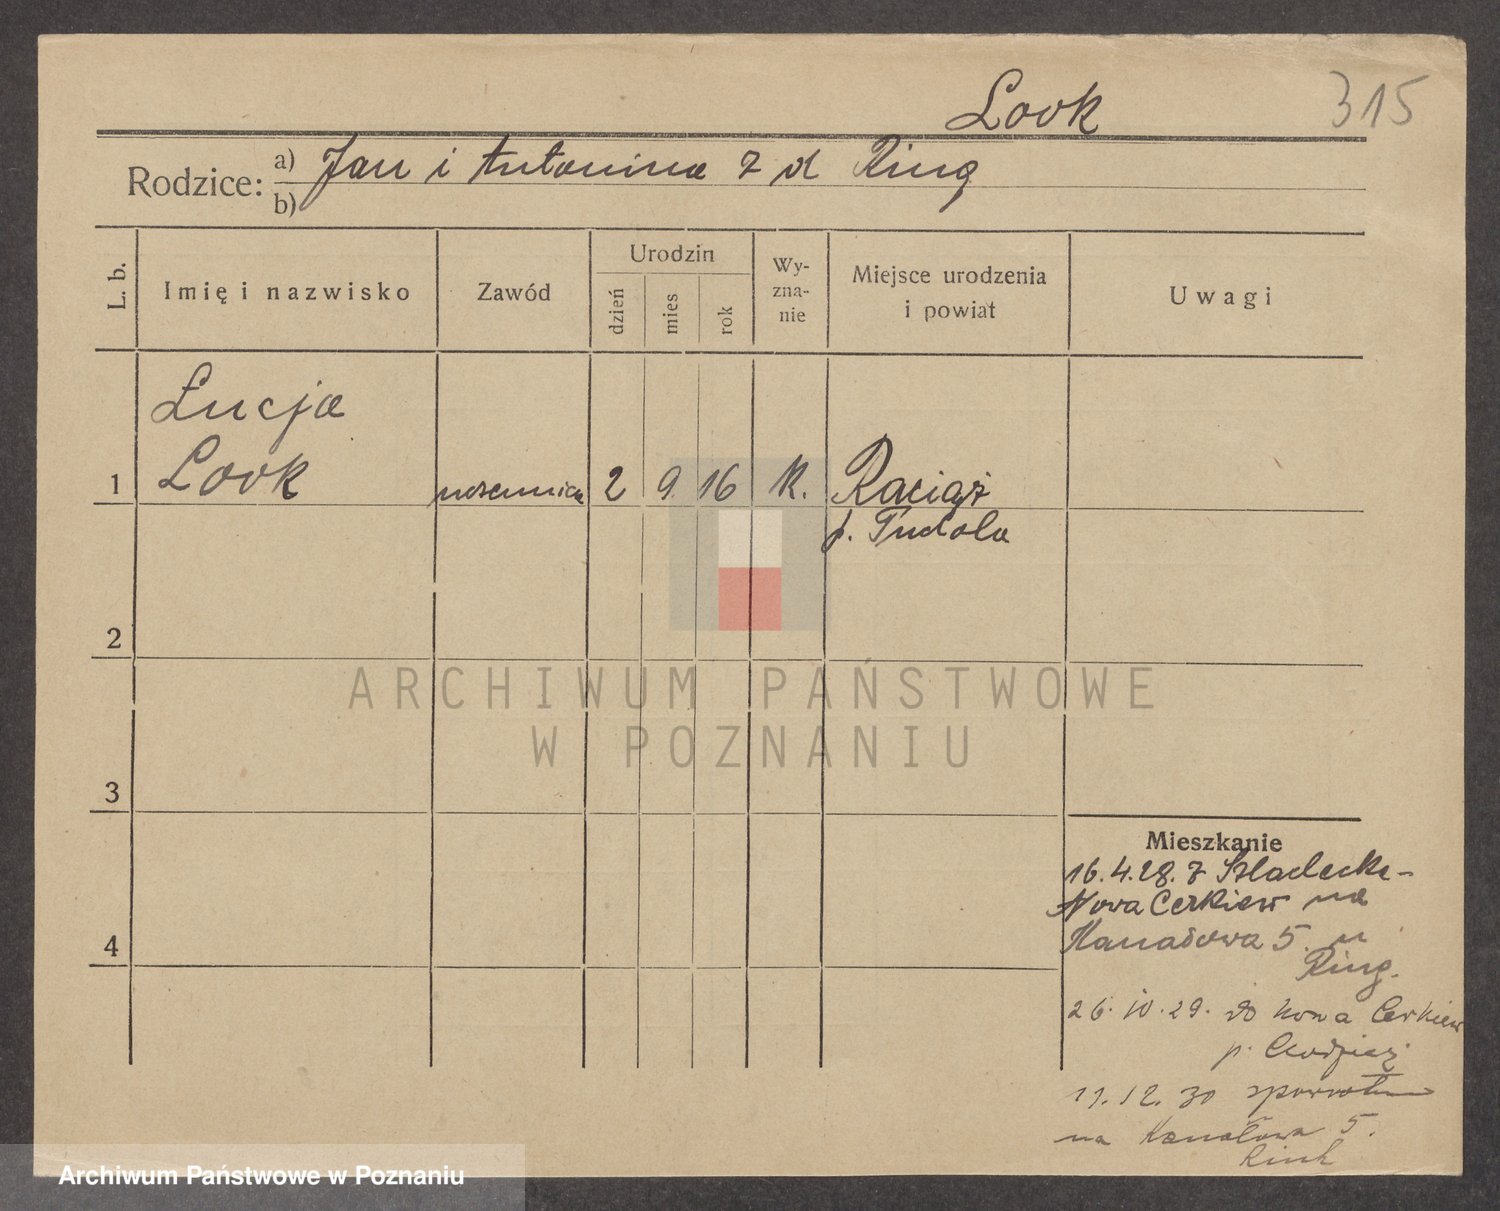 Look
315
Rodzice: a) Jan i Antonina z d Ring
b)
L. b.
Imię i nazwisko
Zawód
Urodzin
dzień
mies
rok
Wy-
zna-
nie
Miejsce urodzenia
i powiat
Uwagi
Łucja
1 Look uczennica 2 9. 16 K. Raciąż
p. Tuchola
2
3
4
Mieszkanie
16.4.28. z
Nowa Cerkiew na
Kanałowa 5. u
Ring.
26.10.29. do Nowa Cerkiew
p. Chodzież
11.12.30 spowrotem
na Kanałowa 5.
Rink
ARCHIWUM PAŃSTWOWE
W POZNANIU
Archiwum Państwowe w Poznaniu